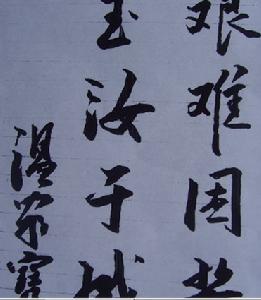 艰难困苦
玉汝于成
温家宝